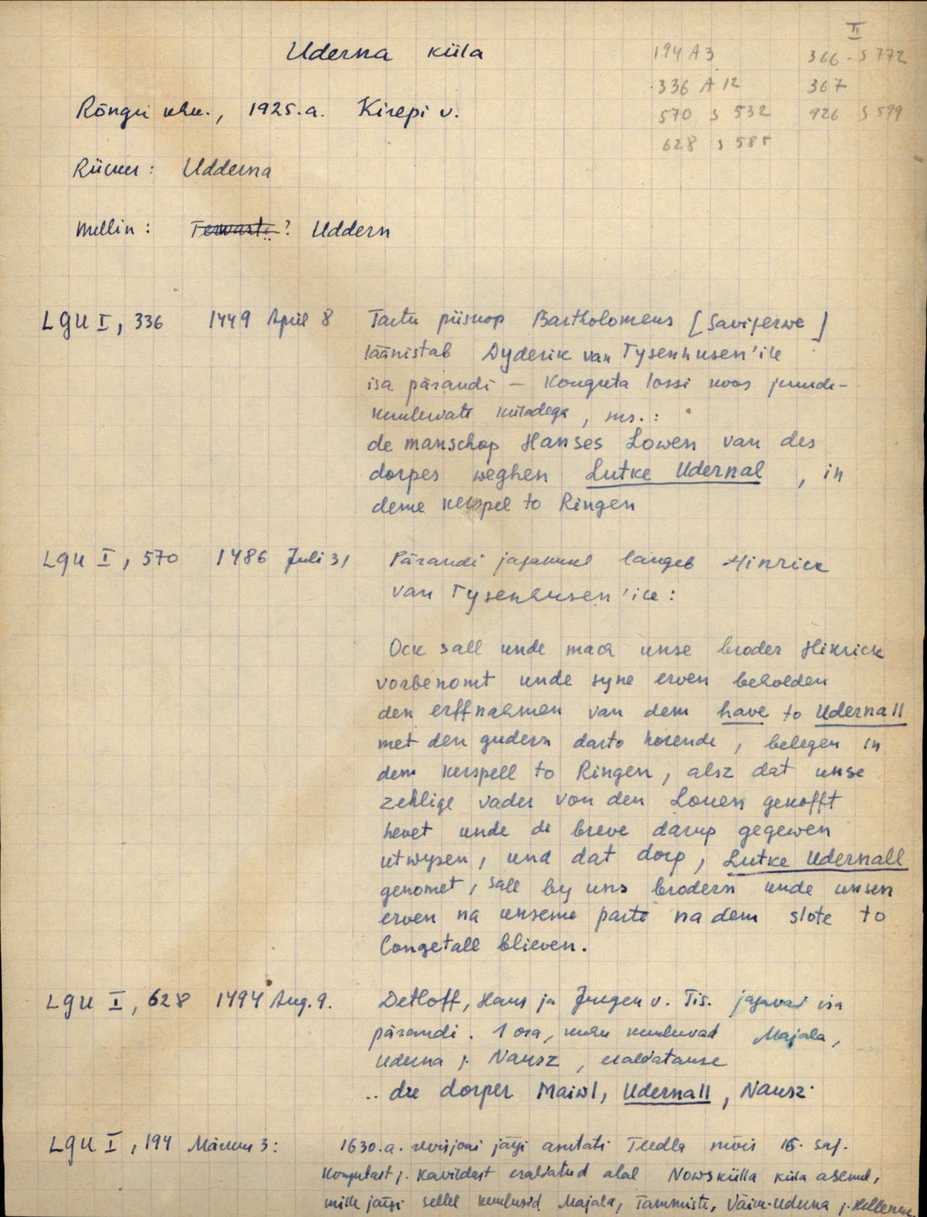 II
Uderna küla
194 A 3 366 - S 772
336 A 12 367
570 S 532 926 S 599
628 S 585
Rõngu khk., 1925.a. Kirepi v.
Rücker: Udderna
Mellin: ? Uddern
LGU I, 336 1449 April 8 Tartu piiskop Bartholomeus [Savijerwe]
läänistab Dyderik van Tysenhusen'ile
isa pärandi – Konguta lossi koos juurde-
kuuluvate küladega, ms.:
de manschop Hanses Lowen van des
dorpes weghen Lutke Udernal, in
deme kerspel to Ringen
LGU I, 570 1486 Juli 31 Pärandi jagamisel langeb Hinrick
van Tysenhusen'ile:
Ock sall unde mach unse broder Hinrick
vorbenomt unde syne erven beholden
den erffnahmen van dem have to Udernall
met den gudern darto horende, belegen in
dem kerspell to Ringen, alsz dat unse
zehlige vader von den Louen gekofft
hevet unde de breve darup gegewen
utwysen, und dat dorp, Lutke Udernall
genomet, sall by uns brodern unde unsen
erven na unseme parte na dem slote to
Congetall blieven.
LGU I, 628 1494 Aug. 9. Detloff, Hans ja Jurgen v. Tis. jagavad isa
pärandi. 1 osa, kuhu kuuluvad Majala,
Uderna j. Nausz, eraldatakse
.. dre dorper Maiwl, Udernall, Nausz.
LGU I, 194 Märkus 3: 1630.a. revisjoni järgi asutati Teedla mõis 16. saj.
Kongutast j. Kavildast eraldatud alal Nowskülla küla asemel,
mille järgi sellel kuulusid Majala, Tammiste, Väike-Uderna j. Hellenurme